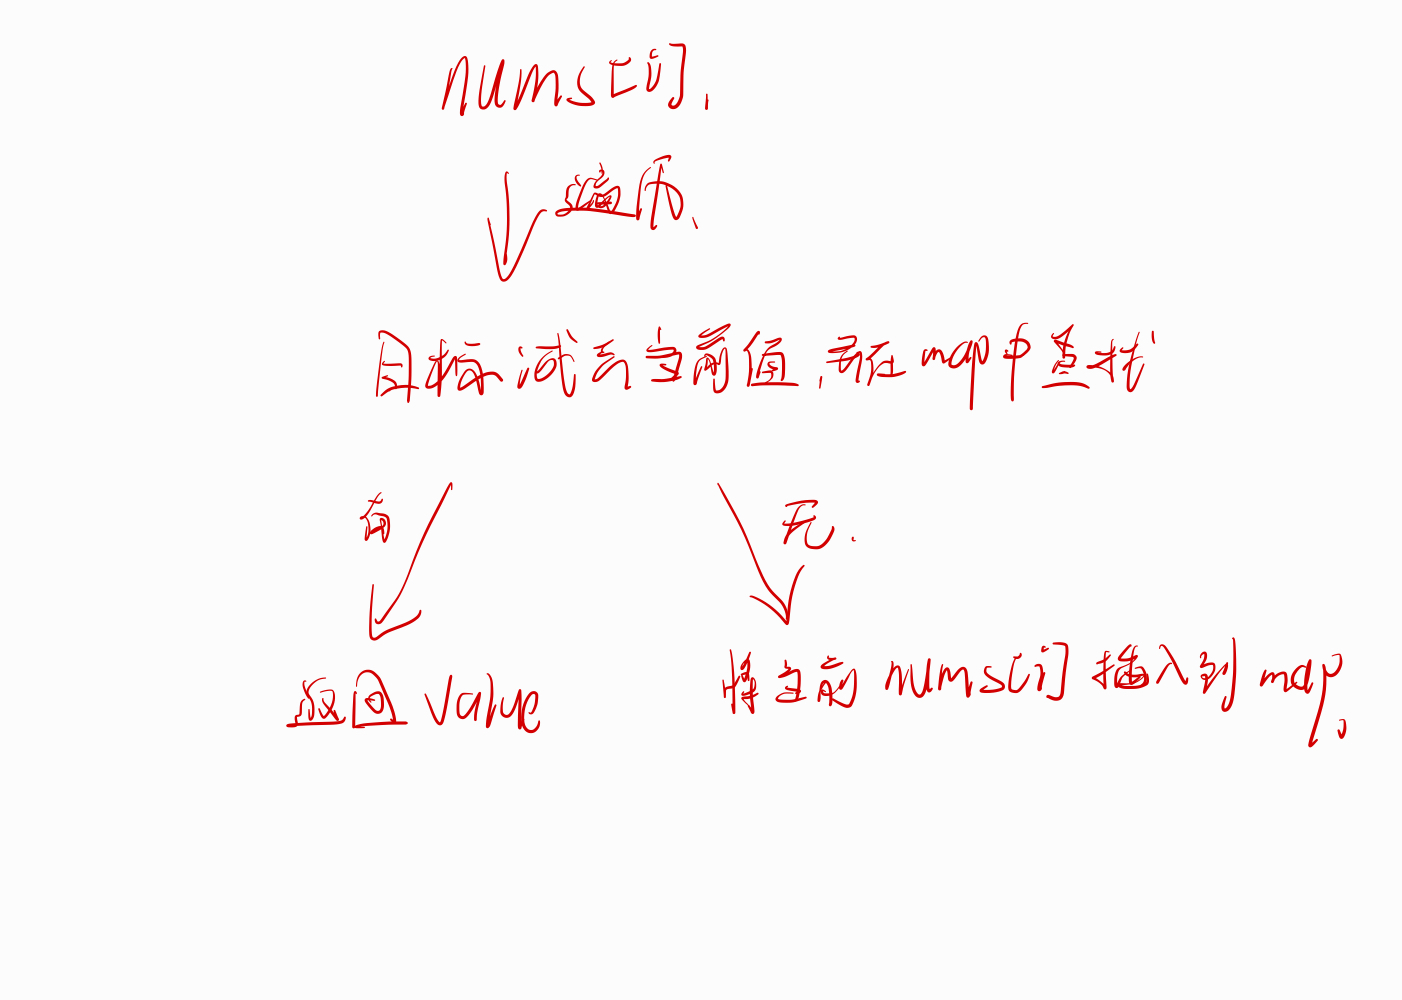 nums[i].
遍历.
目标减去当前值,再在map中查找
有
无.
返回 value
将当前 nums[i] 插入到 map。